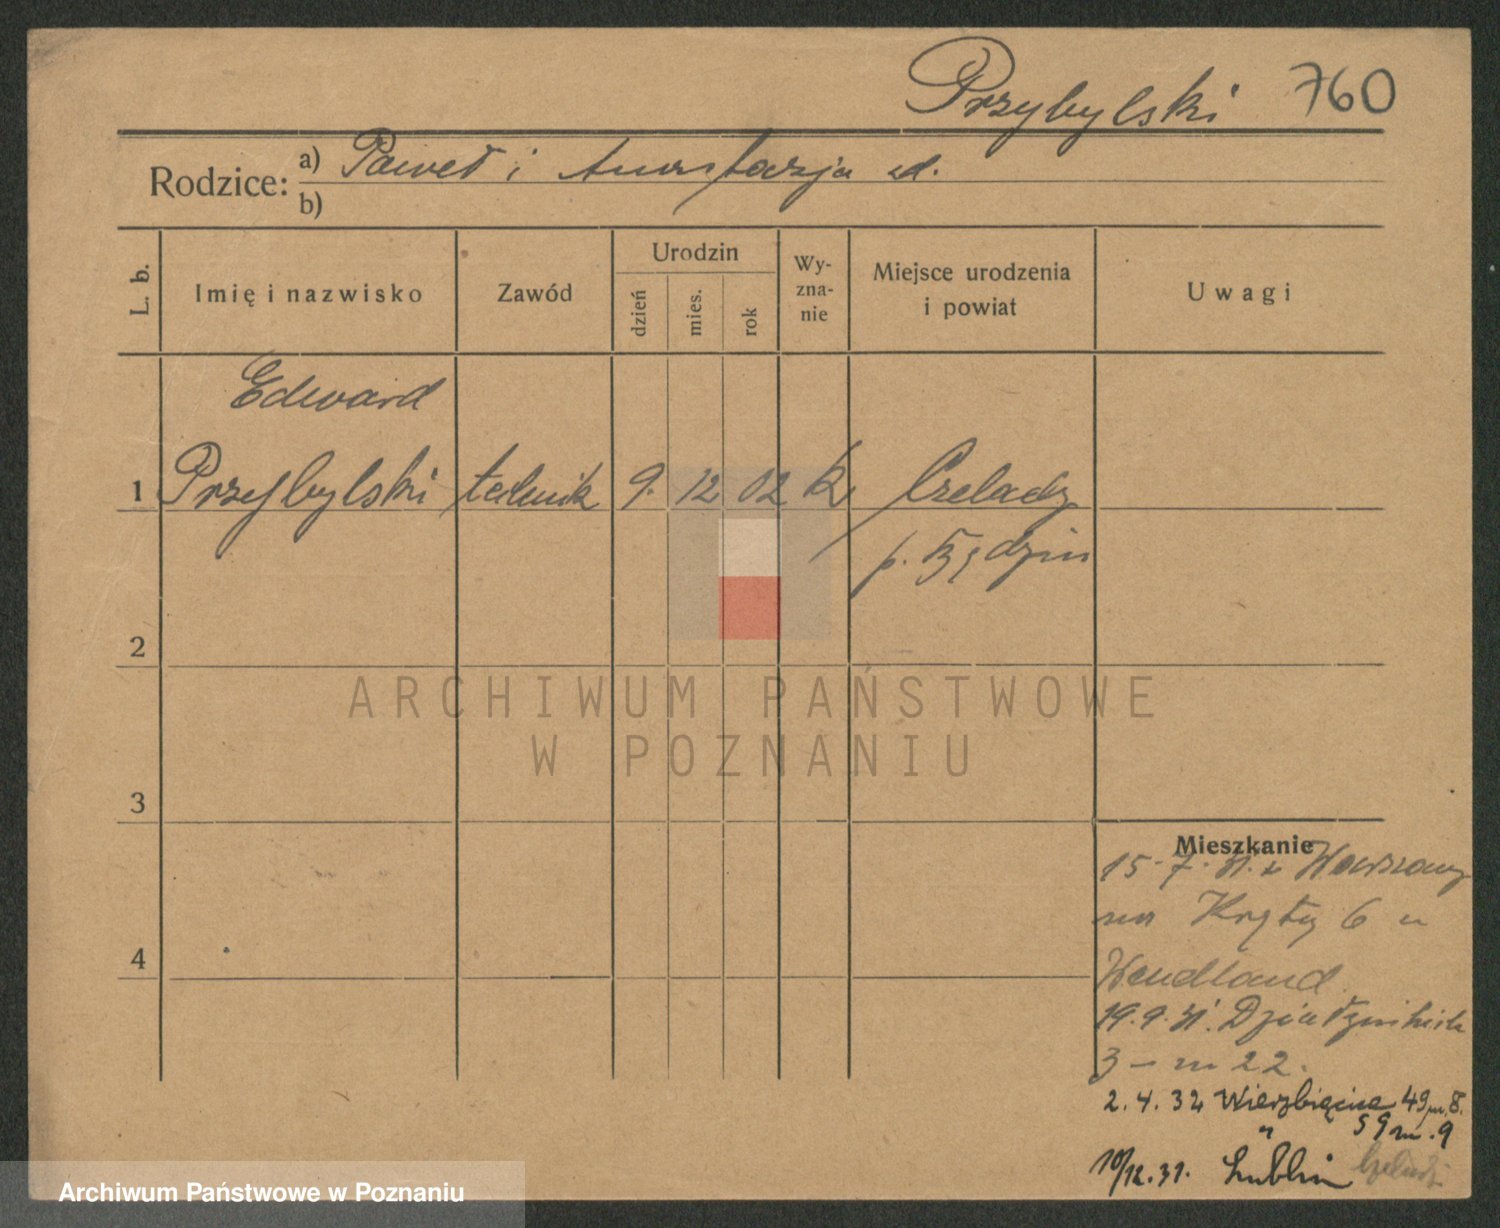 Przybylski 760
Rodzice: a) Paweł i Anastazja
b)
L. b.
Imię i nazwisko
Zawód
Urodzin
dzień
mies.
rok
Wy-
zna-
nie
Miejsce urodzenia
i powiat
Uwagi
Edward
1 Przybylski technik 9. 12 02 k Czeladz
p. Będzin
2
ARCHIWUM PAŃSTWOWE
W POZNANIU
3
Mieszkanie
15.7.31. z Warszawy
na Krętą 6 u
Wendland.
19.9.31. Działyńskich
3 – m 22.
2.4.32 Wierzbięcice 49 m. 8.
" 59 m. 9
4
Lublin
Archiwum Państwowe w Poznaniu